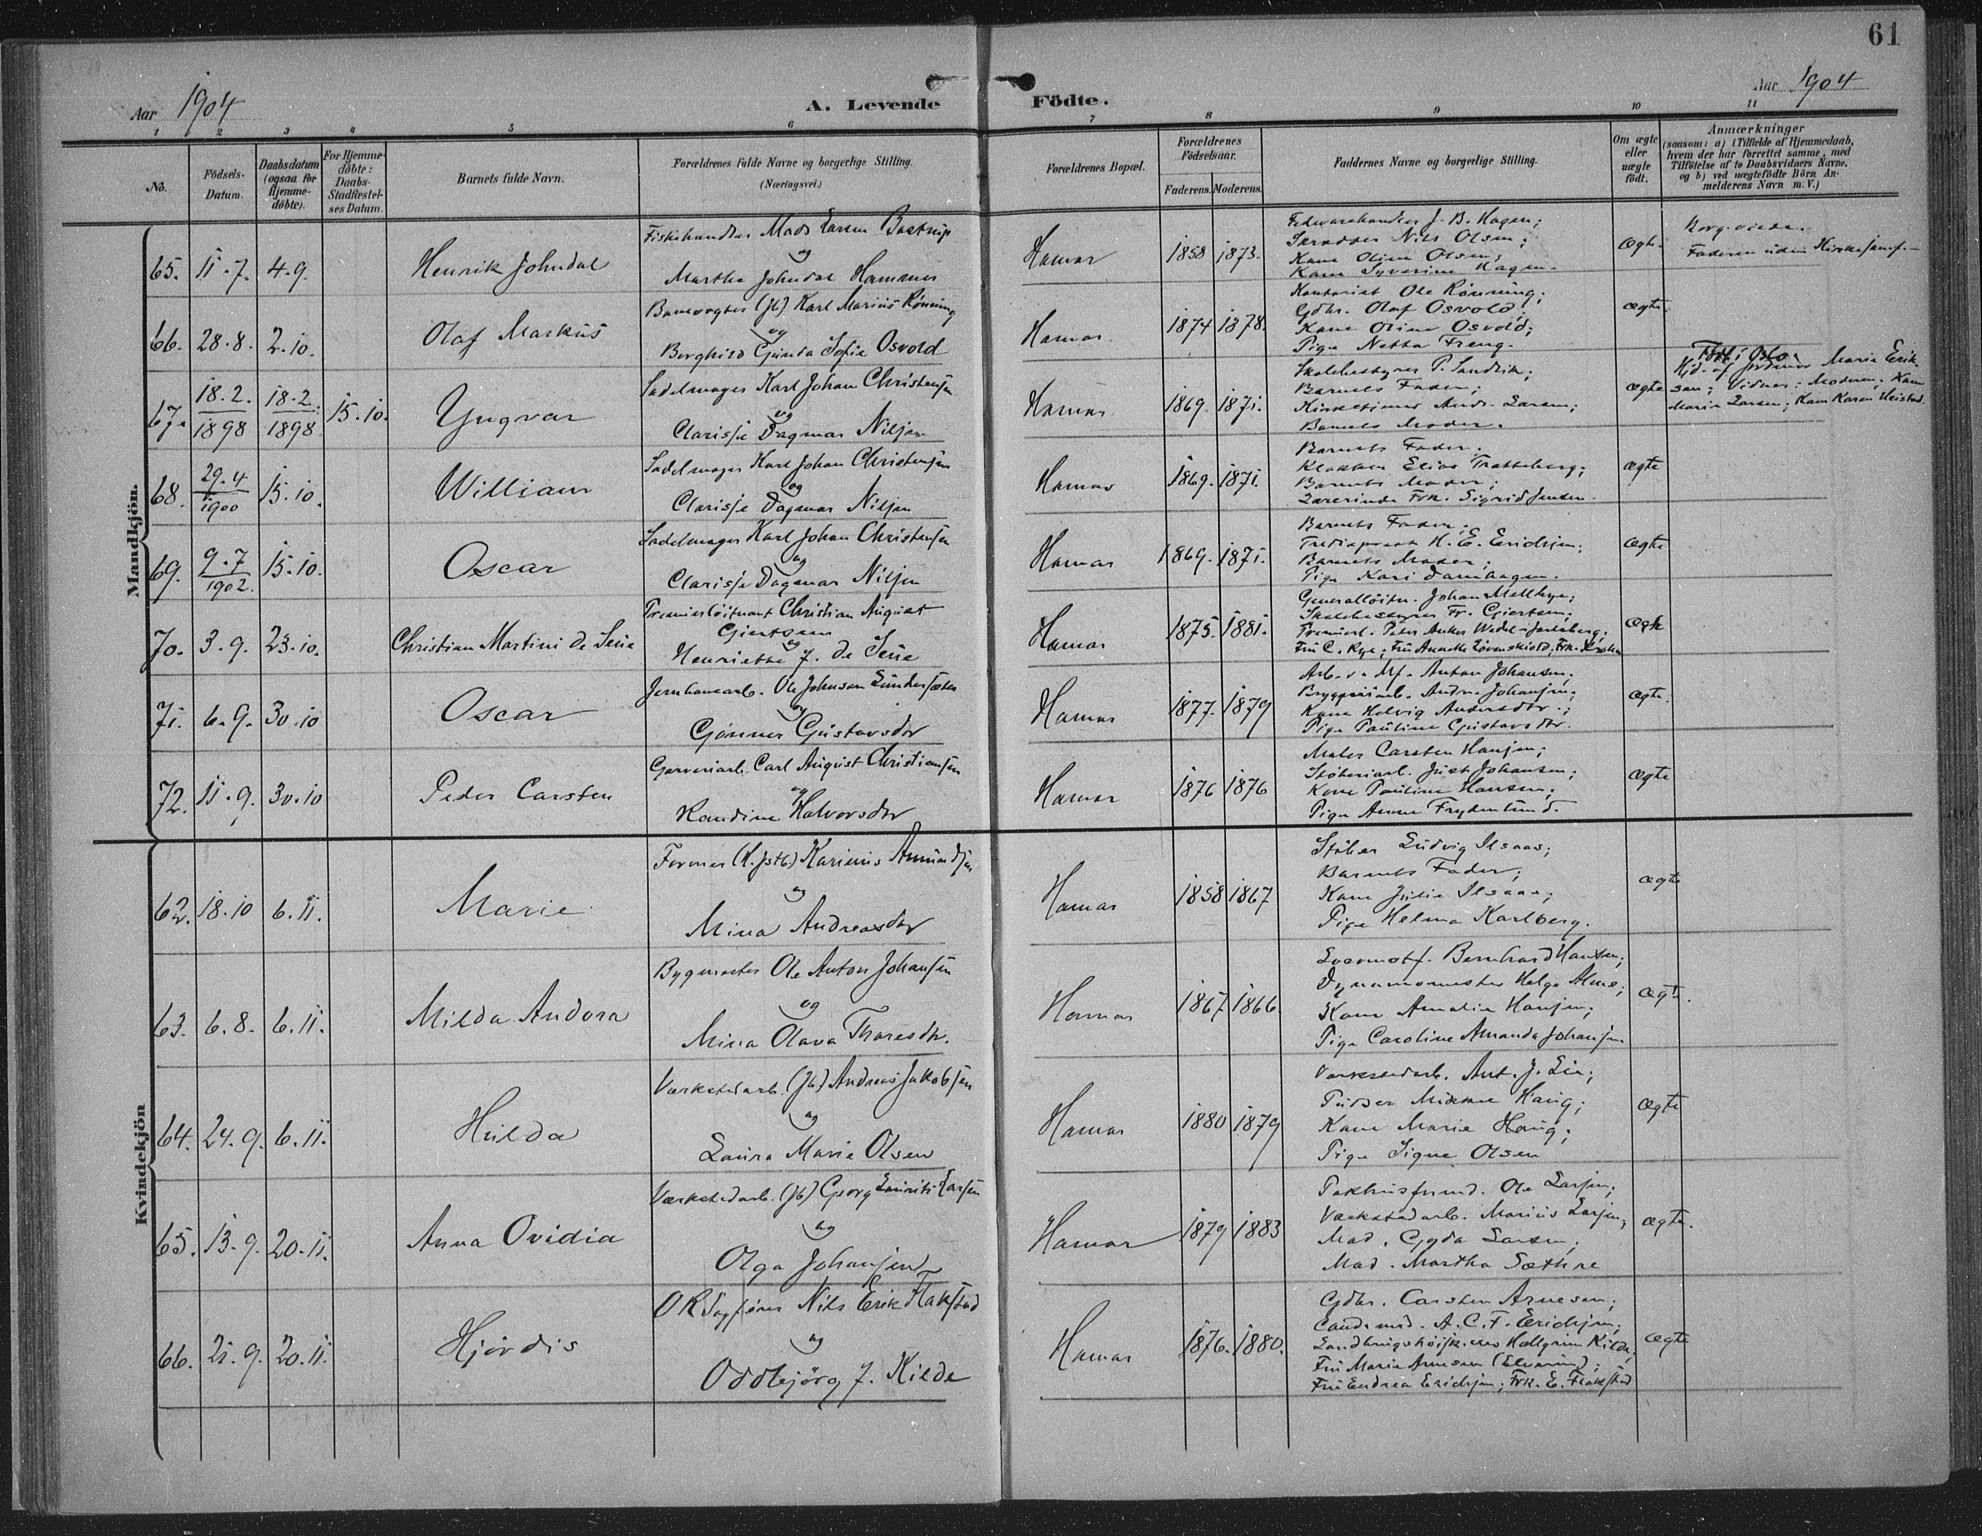 61
Aar 1904
A. Levende Födte.
Aar 1904
1 2 3 4 5 6 7 8 9 10 11
No.
Födsels-Datum.
Daabsdatum (ogsaa for Hjemme-döbte).
For Hjemme-döbte: Daabs-Stadfæstel-ses Datum.
Barnets fulde Navn.
Forældrenes fulde Navne og borgerlige Stilling.
(Næringsvei.)
Forældrenes Bopæl.
Forældrenes Födselsaar.
Faderens. Moderens.
Faddernes Navne og borgerlige Stilling.
Om ægte eller uægte födt.
Anmærkninger
(saasom: a) i Tilfælde af Hjemmedaab,
hvem der har forrettet samme, med
Tilföielse af to Daabsvidners Navne,
og b) ved uægtefödte Börn An-
melderens Navn m. V.)
Mandkjön.
65. 11.7. 4.9. Henrik Johndal
Fiskehandler Mads Larsen Bastrup
og
Martha Johndal Hammer
Hamar 1858 1873.
Fedevarehandler J. B. Hagen;
Nils Olsen;
Kone Oline Olsen;
Kone Syverine Hagen.
ægte
Borg. viede.
Faderen uden
66. 28.8. 2.10. Olaf Markus
Banevogter (Jb) Karl Marius Rönning
og
Borghild Gunda Sofie Osvold
Hamar. 1874 1878.
Kontorist Ole Rönning;
Gdbr. Olaf Osvold;
Kone Oline Osvold;
Pige Netta Freng.
ægte
67. 18.2. 1898 18.2. 1898. 15.10. Yngvar
Sadelmager Karl Johan Christensen
og
Clarisse Dagmar Nilsen
Hamar 1869. 1871.
Skolebestyrer P. Sandvik;
Barnets Fader;
Kirketjener Andr. Larsen;
Barnets Moder.
ægte
Född i Oslo.
Hjd. af Jordmor Marie Erik-
sen; Vidner: Moderen; Kone
Marie Larsen; Kone Karen
68. 29.4 1900 15.10. William
Sadelmager Karl Johan Christensen
og
Clarisse Dagmar Nilsen
Hamar 1869. 1871.
Barnets Fader;
Klokker Elias Tratteberg;
Barnets Moder;
Lærerinde Frk. Sigrid Jensen.
ægte
69. 9.7 1902. 15.10. Oscar
Sadelmager Karl Johan Christensen
og
Clarisse Dagmar Nilsen
Hamar 1869. 1871.
Barnets Fader;
H. E. Erichsen;
Barnets Moder;
Pige Kari
ægte
70. 3.9. 23.10. Christian Martini de Seue
Premierlöitnant Christian August
Giertsen
og
Henriette f. de Seue
Hamar 1875. 1881.
Generallöitn. Johan
Skolebestyrer Fr. Giertsen;
Premierl. Peter Anker Wedel-Jarlsberg;
Fru C. Rye; Fru Annette Lövenskiold;
ægte
71. 6.9. 30.10 Oscar
Jernbanearb. Ole Johnsen
og
Gunner Gustavsdtr
Hamar 1877. 1879
Arb. v. Mf. Anton Johansen;
Bryggeriarb. Andr. Johansen;
Kone Helvig Andersdtr.;
Pige Pauline Gustavsdtr.
ægte.
72. 11.9. 30.10 Peder Carsten
Garveriarb. Carl August Christiansen
og
Randine Halvorsdtr
Hamar 1876 1876
Maler Carsten Hansen;
Støberiarb. Just Johansen;
Kone Pauline Hansen;
Pige Anne Frydenlund.
ægte
Kvindekjön
62. 18.10 6.11. Marie
Former Karinius Amundsen
og
Mina Andreasdtr
Hamar 1858 1867
Støber Ludvig Ilsaas;
Barnets Fader;
Kone Julie Ilsaas;
Pige Helma Karlberg.
ægte
63. 6.8. 6.11. Milda Andora
Bygmester Ole Anton Johansen
og
Mina Olava Thoresdtr.
Hamar 1867 1866
Bernhard Hansen;
Dynamomester Helge
Kone Amalie Hansen;
Pige Caroline Amanda Johansen
ægt.
64. 24.9. 6.11. Hilda
Værkstedarb. (Jb) Andreas Jakobsen
og
Laura Marie Olsen
Hamar 1880 1879
Værkstedarb. Ant. J. Lie;
Pudser Haug;
Kone Marie Haug;
Pige Signe Olsen
ægte
65. 13.9. 20.11. Anna Ovidia
Værkstedarb. (Jb) Georg Laurits Larsen
og
Olga Johansen
Hamar 1879 1883
Pakhusformd. Ole Larsen;
Værkstedarb. Marius Larsen;
Mad. Gyda Larsen;
Mad. Martha Sæthre
ægte.
66. 21.9. 20.11. Hjördis
ORSagförer Nils Erik Flakstad
og
Oddbjörg f. Kilde
Hamar 1876. 1880.
Gdbr. Carsten Arnesen;
Cand. med. A. C. F. Erichsen;
Hallgrim Kilde;
Fru Marie Arnesen (Elverum);
Fru Endrea Erichsen; Frk. E. Flakstad
ægte